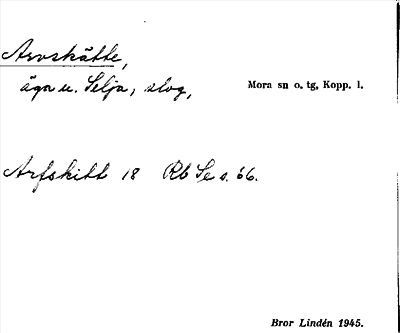 Arvskätte,
äga u. Selja, slog,
Mora sn o. tg. Kopp. l.
Arfskitt 18 Rb Se s. 66.
Bror Lindén 1945.